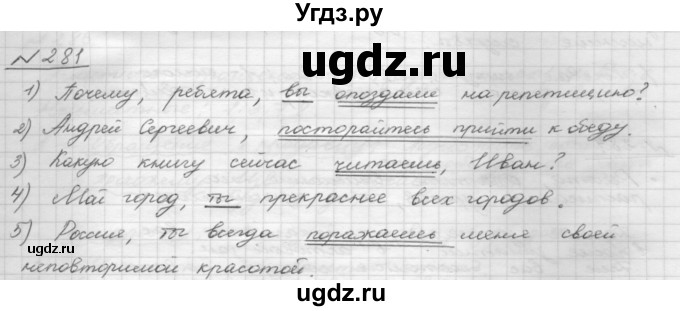 Угдз.ру
№ 281
ugdz.ru
1) Почему, ребята, вы опоздаете на репетицию?
2) Андрей Сергеевич, посторайтесь прийти к обеду.
3) Какую книгу сейчас читаешь, Иван?
4) Мой город, ты прекраснее всех городов.
5) Россия, ты всегда поражаешь меня своей
ugdz.ru
неповторимой красотой.
ugdz.ru
ugdz.ru